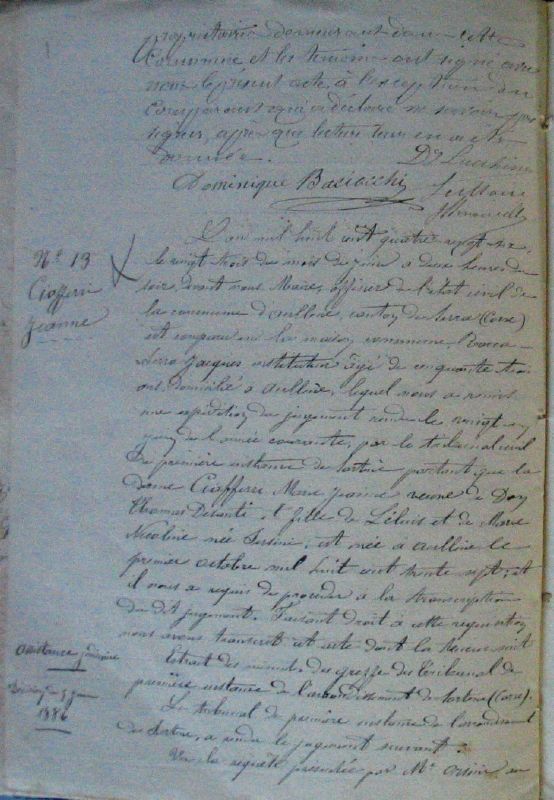 propriétaire demeurant dans cette
Commune et les témoins ont signé avec
nous le présent acte, à l'exception du
comparant qui a déclaré ne savoir
signer, après que lecture leur en a été
donnée.
Dominique Baciocchi
Nº 13
Ciofferri
Jeanne
L'an mil huit cent quatre vingt six
le vingt trois du mois de Juin à deux heures du
soir, devant nous Maire, officier de l'état civil de
la commune d'aullène, canton de Serra (Corse)
est comparu en la maison commune
Jacques instituteur âgé de cinquante trois
ans domicilié à aullène, lequel nous a remis
une expédition du jugement rendu le vingt
Juin de l'année courante, par le tribunal civil
de première instance de Sartène portant que la
dame Ciofferri Marie Jeanne veuve de Don
Thomas et fille de et de Marie
Nicoline née est née à aullène le
premier octobre mil huit cent trente sept; et
il nous a requis de procéder à la transcription
du dit jugement. Faisant droit à cette requisition
nous avons transcrit cet acte dont la teneur suit
assistance judiciaire
Extrait des minutes du greffe du Tribunal de
première instance de l'arrondissement de Sartène (Corse).
1886
Le tribunal de première instance de l'arrondissement
de Sartène, a rendu le jugement suivant:
Vu la requête présentée par Me